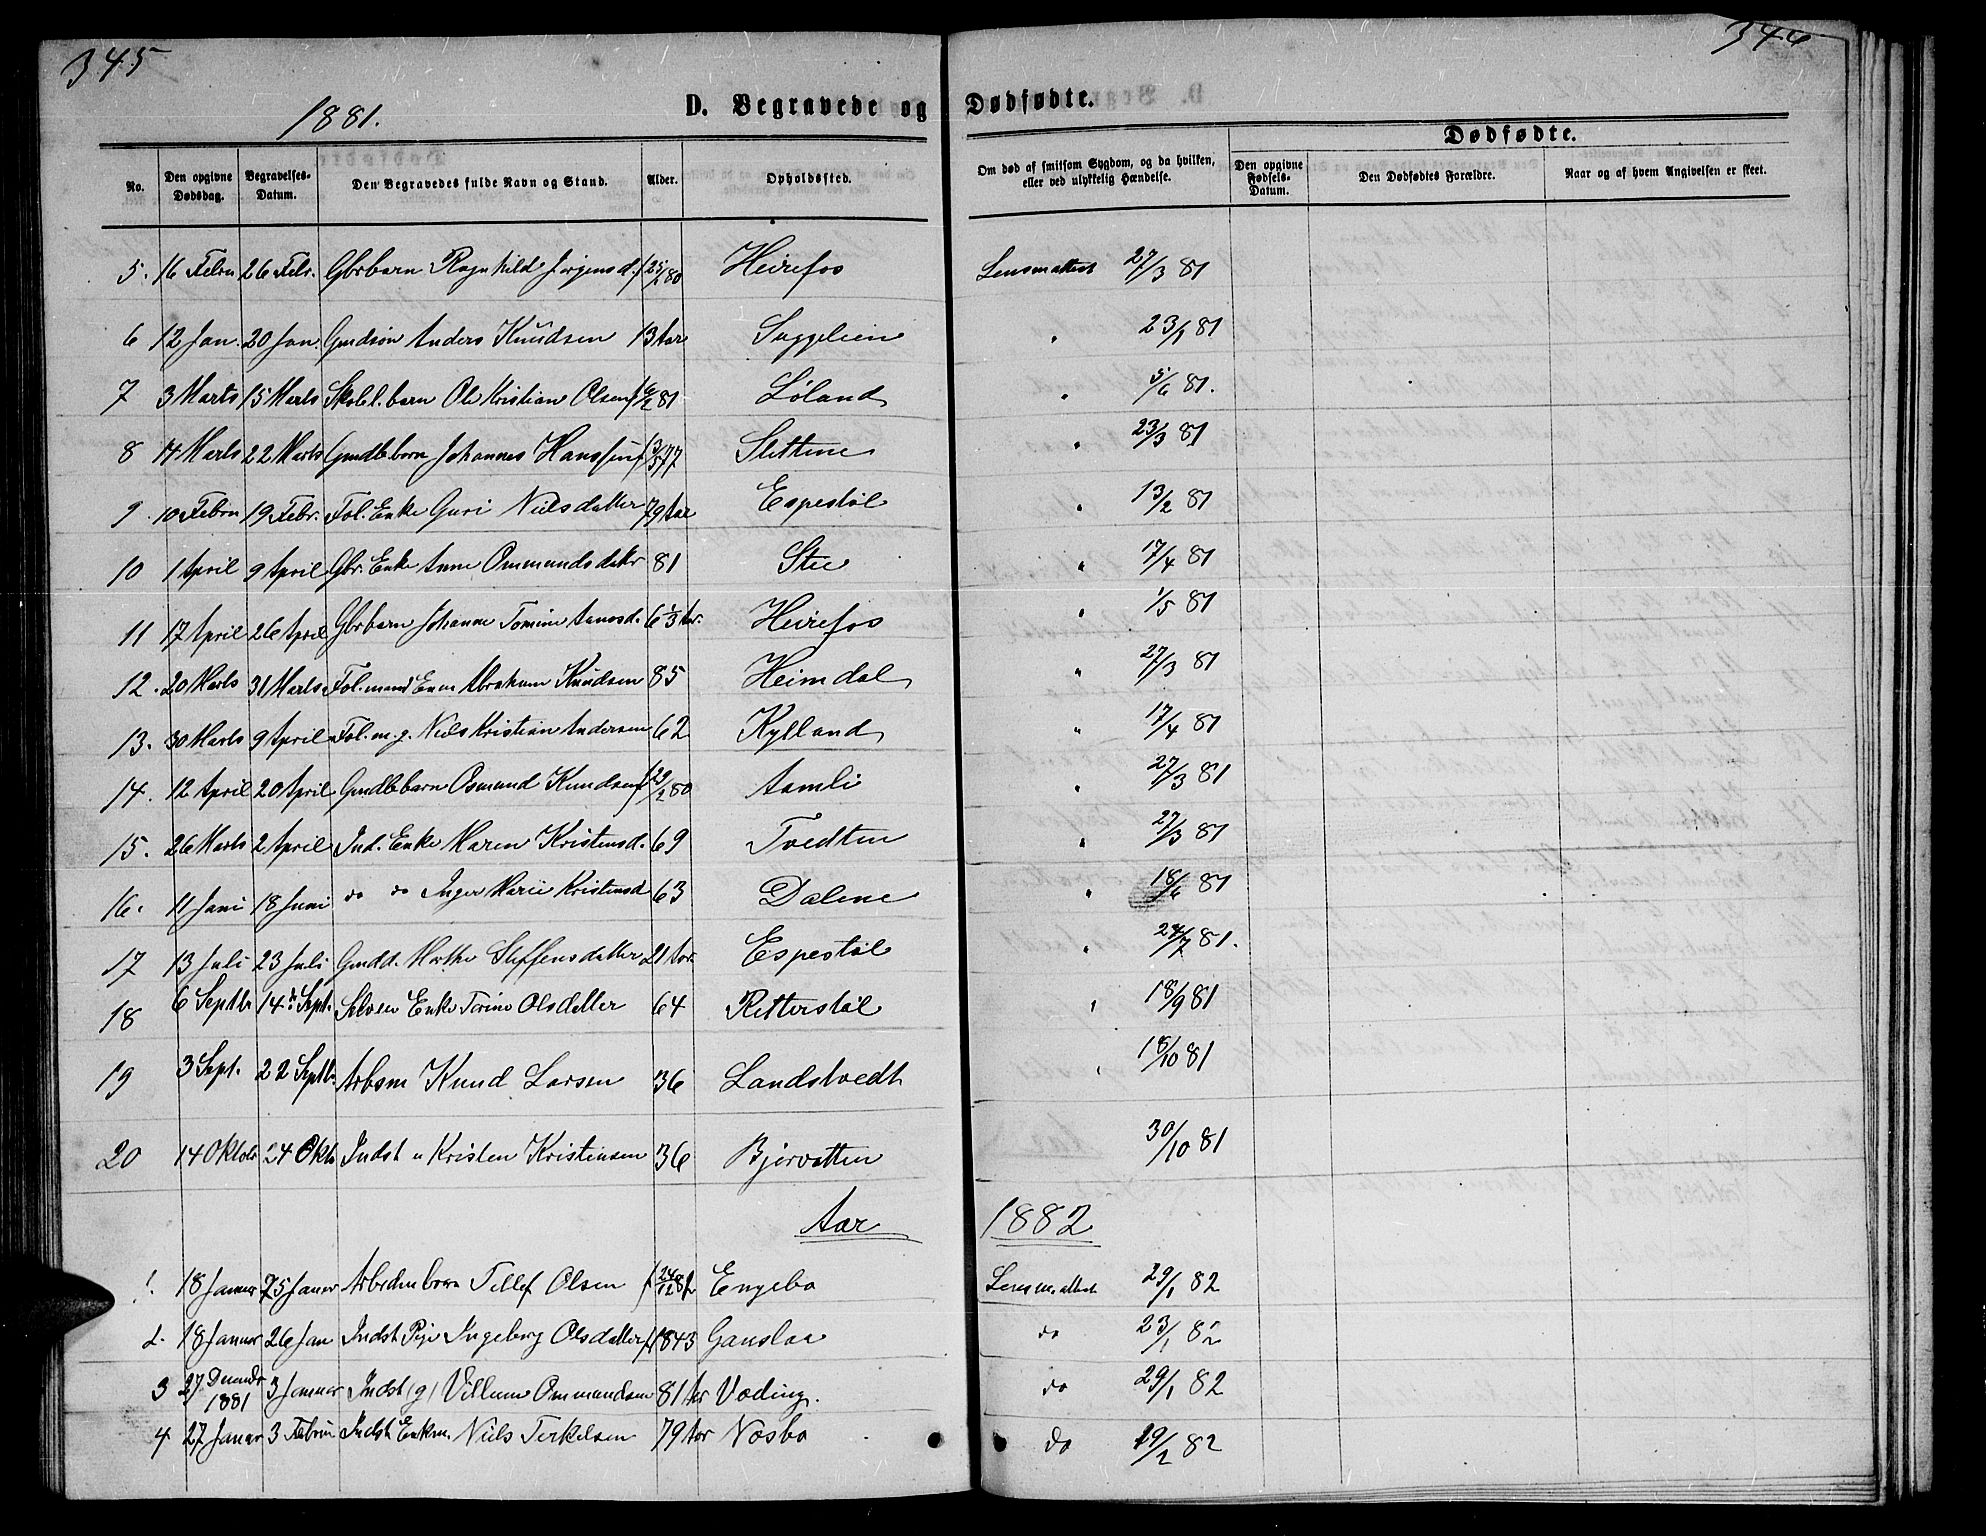 345
346
1881.
D. Begravede og Dødfødte.
Dødfødte.
No.
Den opgivne Dødsdag.
Begravelses-Datum.
Den Begravedes fulde Navn og Stand.
Alder.
Opholdssted.
Om død af smitsom Sygdom, og da hvilken, eller ved ulykkelig Hændelse.
Den opgivne Fødsels-Datum.
Den Dødfødtes Forældre.
Naar og af hvem Angivelsen er skeet.
5. 16 Febru 26 Febr. Gbrbarn Ragnhild Jørgensd. f 25/2 80 Heirefos Lensmattest 27/3 81
6 12 Jan. 20 Jan. Grndsøn Anders Knudsen 13 Aar Suggelien " 23/1 81
7 3 Marts 15 Marts barn Ole Kristian Olsen f 6/2 81 Løland " 5/6 81.
8 14 Marts 22 Marts Grndlbbarn Johannes Hanssen f 3/5 77 Slettene " 23/3 81
9 . 10 Febru 19 Febr. Fol. Enke Guri Nielsdatter 79 Aar Espestøl " 13/2 81
10 1 April 9 April Gbr. Enke Anne Ommundsdatr 81 Stie " 17/4 81
11 17 April 26 April Gbrbarn Johanne Tomine Aanosd. 6 1/3 Aar. Heirefos " 1/5 81
12. 20 Marts 31 Marts Fol.mand Enm Abraham Knudsen 85 Heimdal " 27/3 81
13. 30 Marts 9 April Fol.m. g. Niels Kristian Andersen 62 Kylland " 17/4 81
14. 12 April 20 April Grndlbbarn Osmund Knudsen f 29/2 80 Aamli " 27/3 81
15. 26 Marts 2 April Ind. Enke Maren Kristensd. 69 Tvedten " 27/3 81
16. 11 Juni 18 Juni do do Inger Marie Kristensd 63 Dalene " 18/6 81
17 13 Juli 23 Juli Grndd. Marthe Steffensdatter 21 Aar. Espestøl " 24/7 81.
18 6 Septb 14de Sept. Enke Torine Olsdatter 64 Retterstøl " 18/9 81
19 3 Sept. 22 Septb. Arbsm Knud Larsen 36 Landstvedt " 18/10 81
20 14 Oktob 24 Oktb Indst u Kristen Kristensen 36 Bjorvatten 30/10 81
Aar 1882
1. 18 Januar 25 Januar Arbeiderbarn Tellef Olsen f 24/12 81 Engebo Lensm.attest 29/1 82
2. 18 Januar 26 Jan Indst Pige Ingeborg Olsdatter f 1843 Ganslaa do 23/1 82
3 27 Decmbr 1881 3 Januar Indst (g) Villum Ommundsen 81 Ar Voding. do 29/1 82
4 27 Januar 3 Februa Indst Enkm. Niels Terkelsen 79 Aar Næsbo do 19/2 82